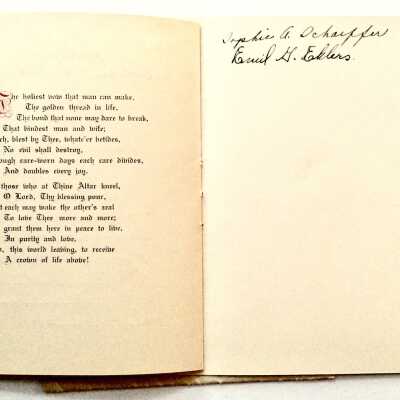 The holiest vow that man can make,
The golden thread in life,
The bond that none may dare to break,
That bindest man and wife;
blest by Thee, whate'er betides,
No evil shall destroy,
care-worn days each care divides,
And doubles every joy.
those who at Thine Altar kneel,
O Lord, Thy blessing pour,
each may wake the other's zeal
To love Thee more and more;
grant them here in peace to live,
In purity and love,
this world leaving, to receive
A crown of life above!
Sophie A Schaeffer
Emil H. Ehlers.